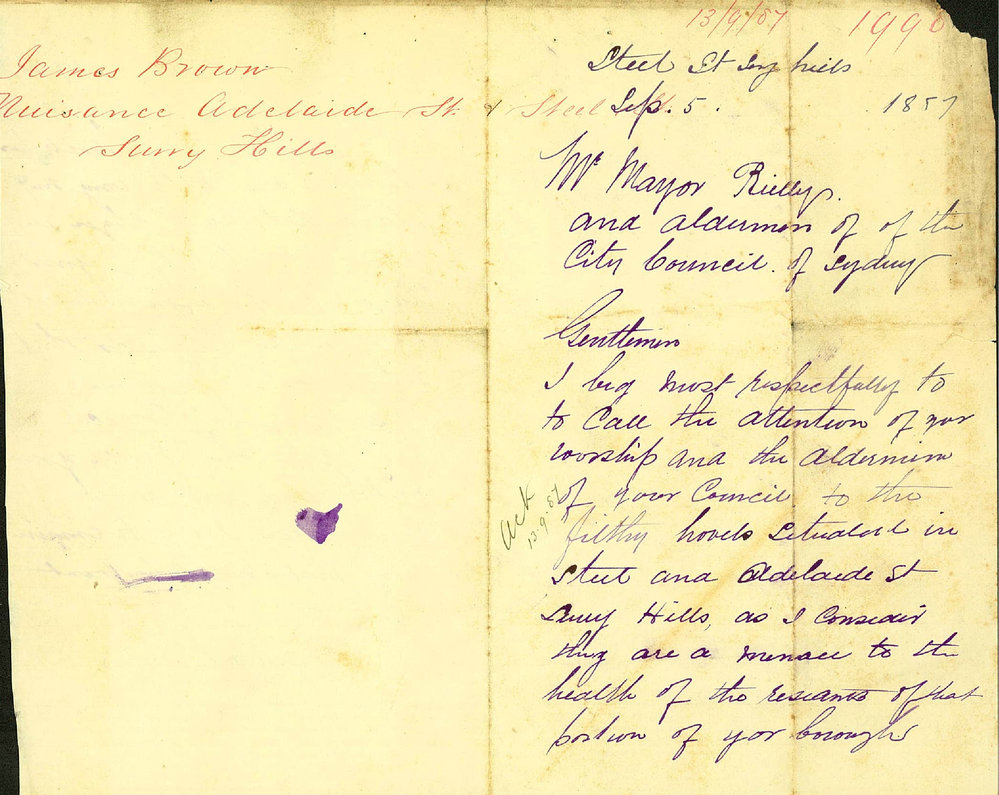 James Brown
Nuisance Adelaide St & Steel St
Surry Hills
13/9/87
1990
Steel St Sry hills
Sep. 5. 1887
Mr Mayor Rielly.
and aldermen of of the
City Council. of Sydney
Gentlemen
I beg most respectfully to
to Call the attention of your
worship and the Aldermen
of your Council to the
filthy hovels setuded in
Steel and Adelaide St
Surry Hills, as I Consider
they are a menace to the
health of the resiants of that
portion of yor borough
Ack
13.9.87